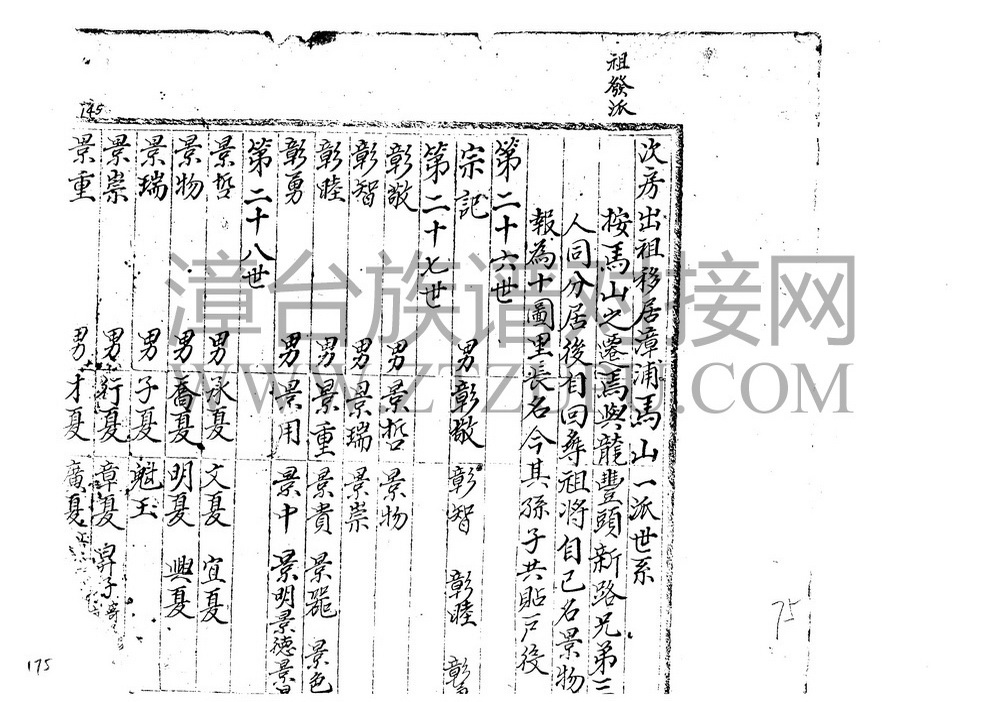 祖發派
145
次房出祖移居漳浦馬山一派世系
按馬山之遷馬與龍豐頭新路兄弟三
人同分居後自回尋祖將自己名景物
報為十圖里長名今其孫子共貼戶役
第二十六世
宗記 男彰敬 彰智 彰睦 彰
第二十七世
彰敬 男景哲 景物
彰智 男景瑞 景崇
彰睦 男景重 景貴 景器 景色
彰勇 男景用 景中 景明 景德 景
第二十八世
景哲 男承夏 文夏 宜夏
景物 男喬夏 明夏 興夏
景瑞 男子夏 魁玉
景崇 男行夏 章夏
景重 男才夏 廣夏
漳台族谱对接网
WWW.ZTZUPU.COM
75
175